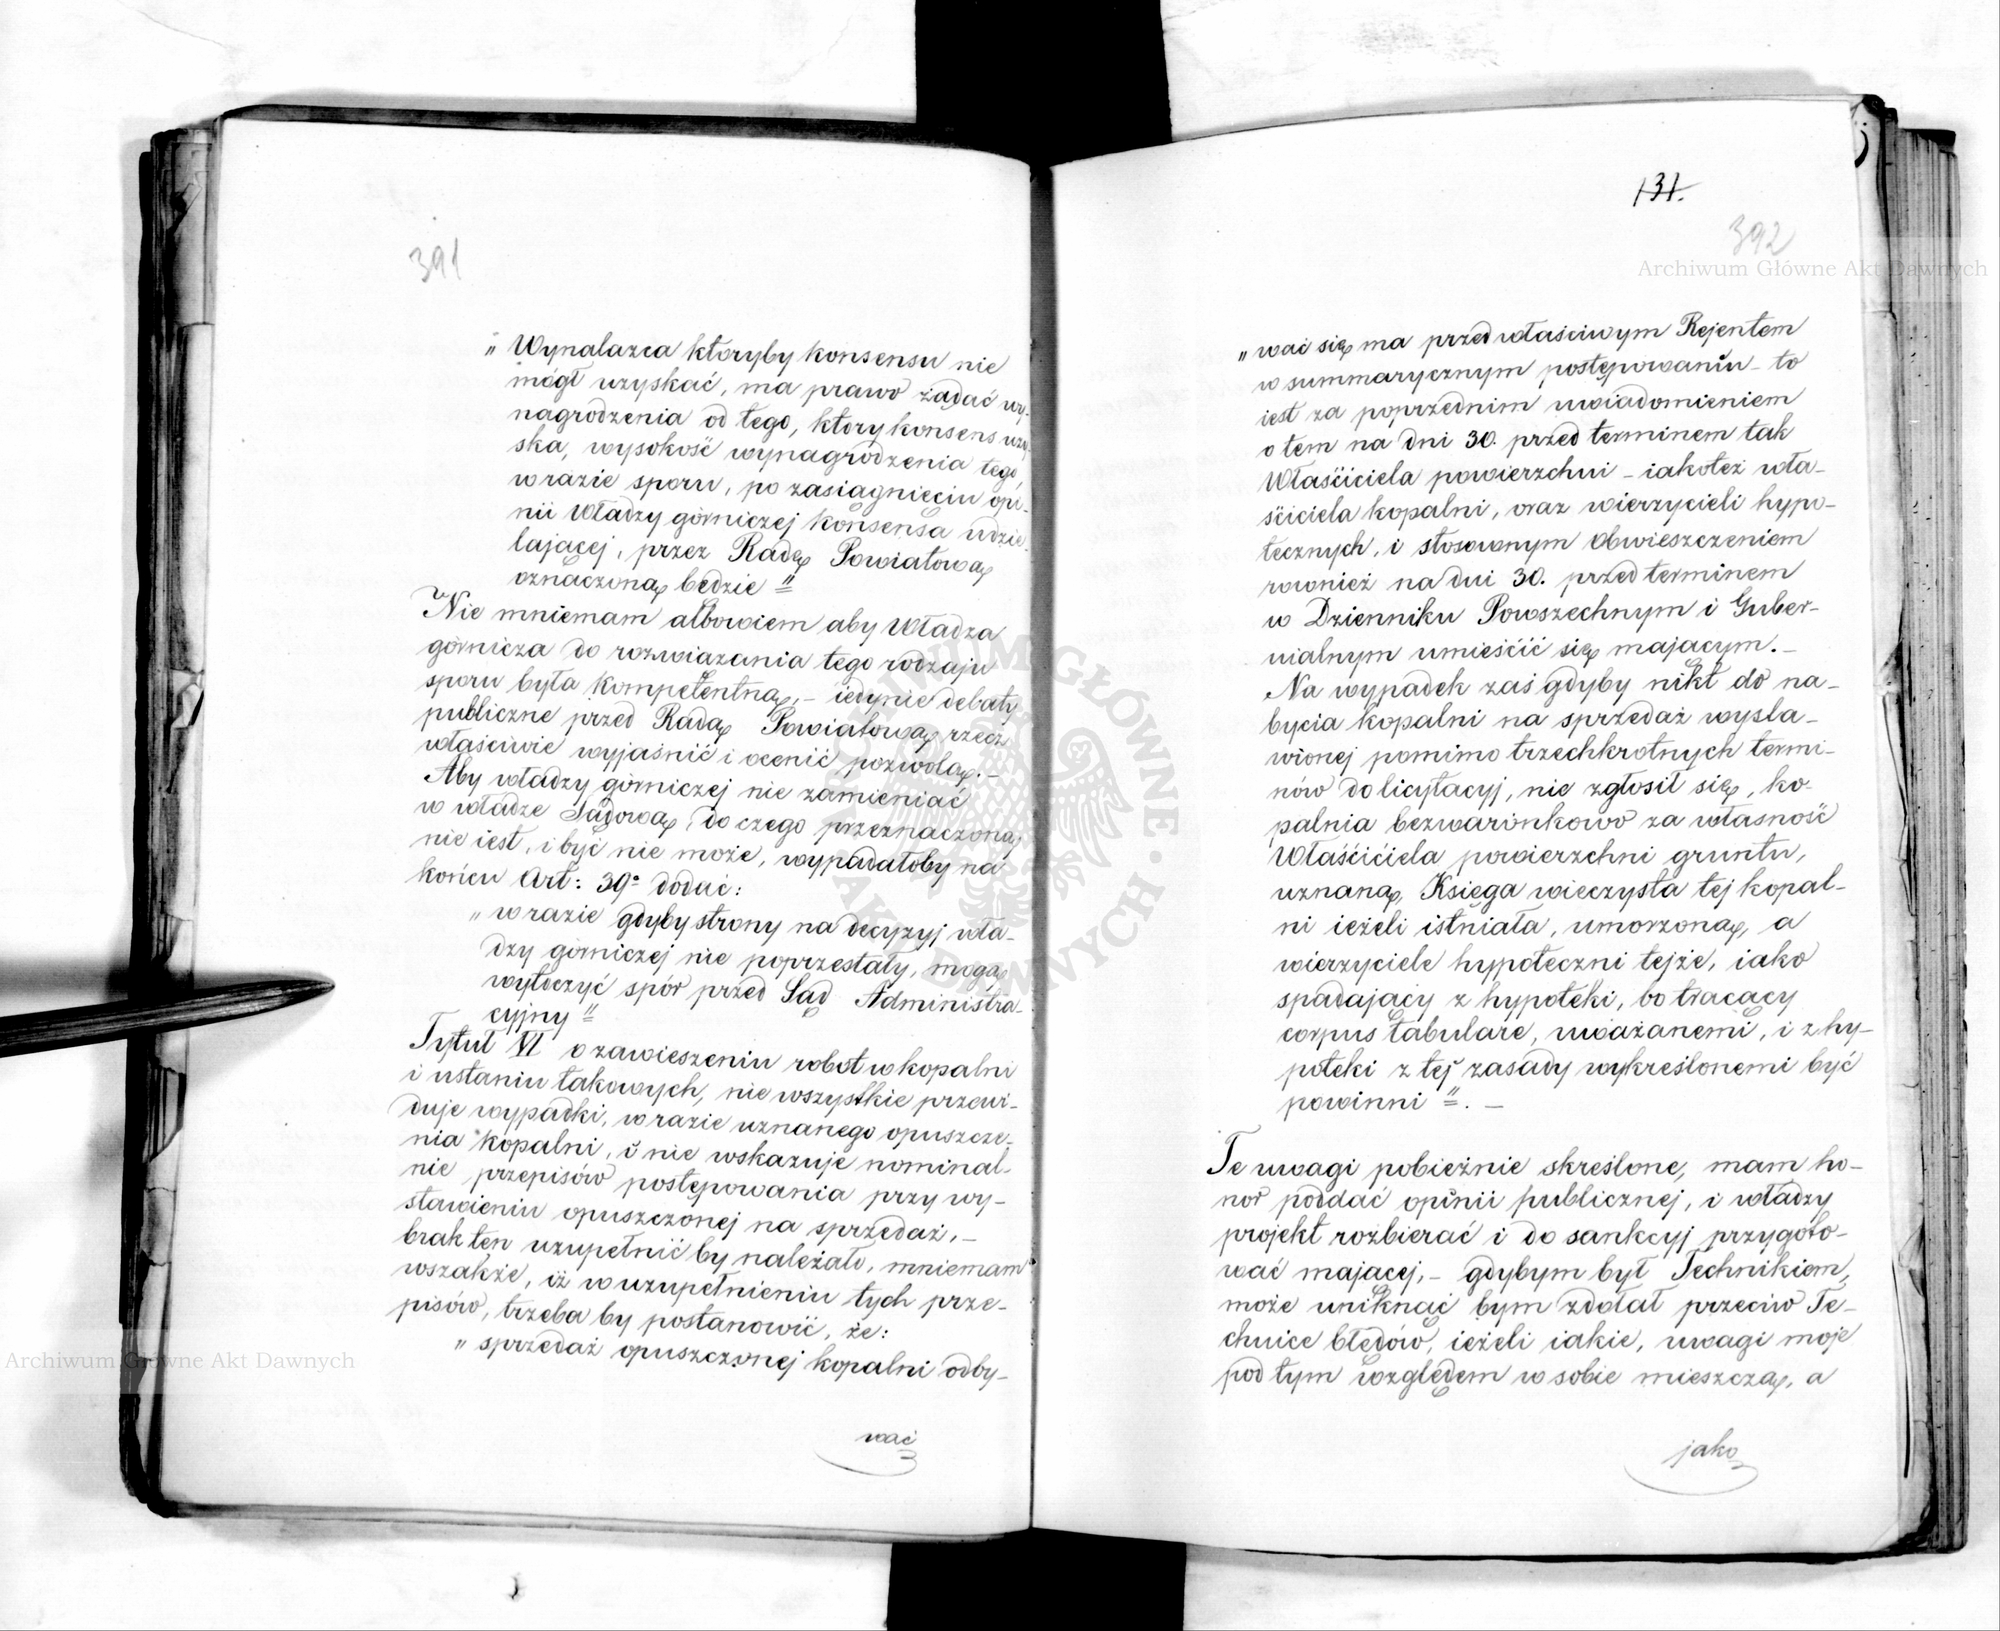 391
„ Wynalazca ktoryby konsensu nie
mógł uzyskać, ma prawo żadać wy-
nagrodzenia od tego, ktory konsens uzy-
ska, wysokość wynagrodzenia tego
w razie sporu, po zasiągnięciu opi-
nii Władzy górniczej konsensa udzie-
lającej, przez Radę Powiatową
oznaczoną będzie "
Nie mniemam albowiem aby Władza
górnicza do rozwiązania tego rodzaju
sporu była kompetentną, – iedynie debaty
publiczne przed Radą Powiatową rzecz
właściwie wyjaśnić i ocenić pozwolą. –
Aby władzy górniczej nie zamieniać
w władze Sądową, do czego przeznaczoną
nie iest, i być nie może, wypadałoby na
końcu Art: 39º dodać:
„ w razie gdyby strony na decyzyj wła-
dzy górniczej nie poprzestały, mogą
wytoczyć spór przed Sąd Administra-
cyjny "
Tytuł VI o zawieszeniu robot w kopalni
i ustaniu takowych, nie wszystkie przewi-
duje wypadki, w razie uznanego opuszcze-
nia kopalni, i nie wskazuje nominal-
nie przepisów postępowania przy wy-
stawieniu opuszczonej na sprzedaż, –
brak ten uzupełnić by należało, mniemam
wszakże, iż w uzupełnieniu tych prze-
pisów, trzeba by postanowić, że:
„ sprzedaż opuszczonej kopalni odby-
wać
131.
392
„ wać się ma przed właściwym Rejentem
w summarycznym postępowaniu – to
iest za poprzednim uwiadomieniem
o tem na dni 30. przed terminem tak
Właściciela powierzchni – iakoteż wła-
ściciela kopalni, oraz wierzycieli hypo-
tecznych, i stosownym obwieszczeniem
rownież na dni 30. przed terminem
w Dzienniku Powszechnym i Guber-
nialnym umieścić się mającym. –
Na wypadek zaś gdyby nikt do na-
bycia kopalni na sprzedaż wysta-
wionej pomimo trzechkrotnych termi-
nów do licytacyj, nie zgłosił się, ko-
palnia bezwarunkowo za własność
Właściciela powierzchni gruntu,
uznaną, Księga wieczysta tej kopal-
ni ieżeli istniała, umorzoną, a
wierzyciele hypoteczni tejże, iako
spadający z hypoteki, bo tracący
corpus tabulare, uważanemi, i z hy-
poteki z tej zasady wykreślonemi być
powinni ". –
Te uwagi pobieżnie skreślone, mam ho-
nor poddać opinii publicznej, i władzy
projekt rozbierać i do sankcyj przygoto-
wać mającej, – gdybym był Technikiem,
może uniknąć bym zdołał przeciw Te-
chnice błędów, ieżeli iakie, uwagi moje
pod tym względem w sobie mieszczą, a
jako
Archiwum Główne Akt Dawnych
Archiwum Główne Akt Dawnych
ARCHIWUM GŁÓWNE · AKT DAWNYCH ·